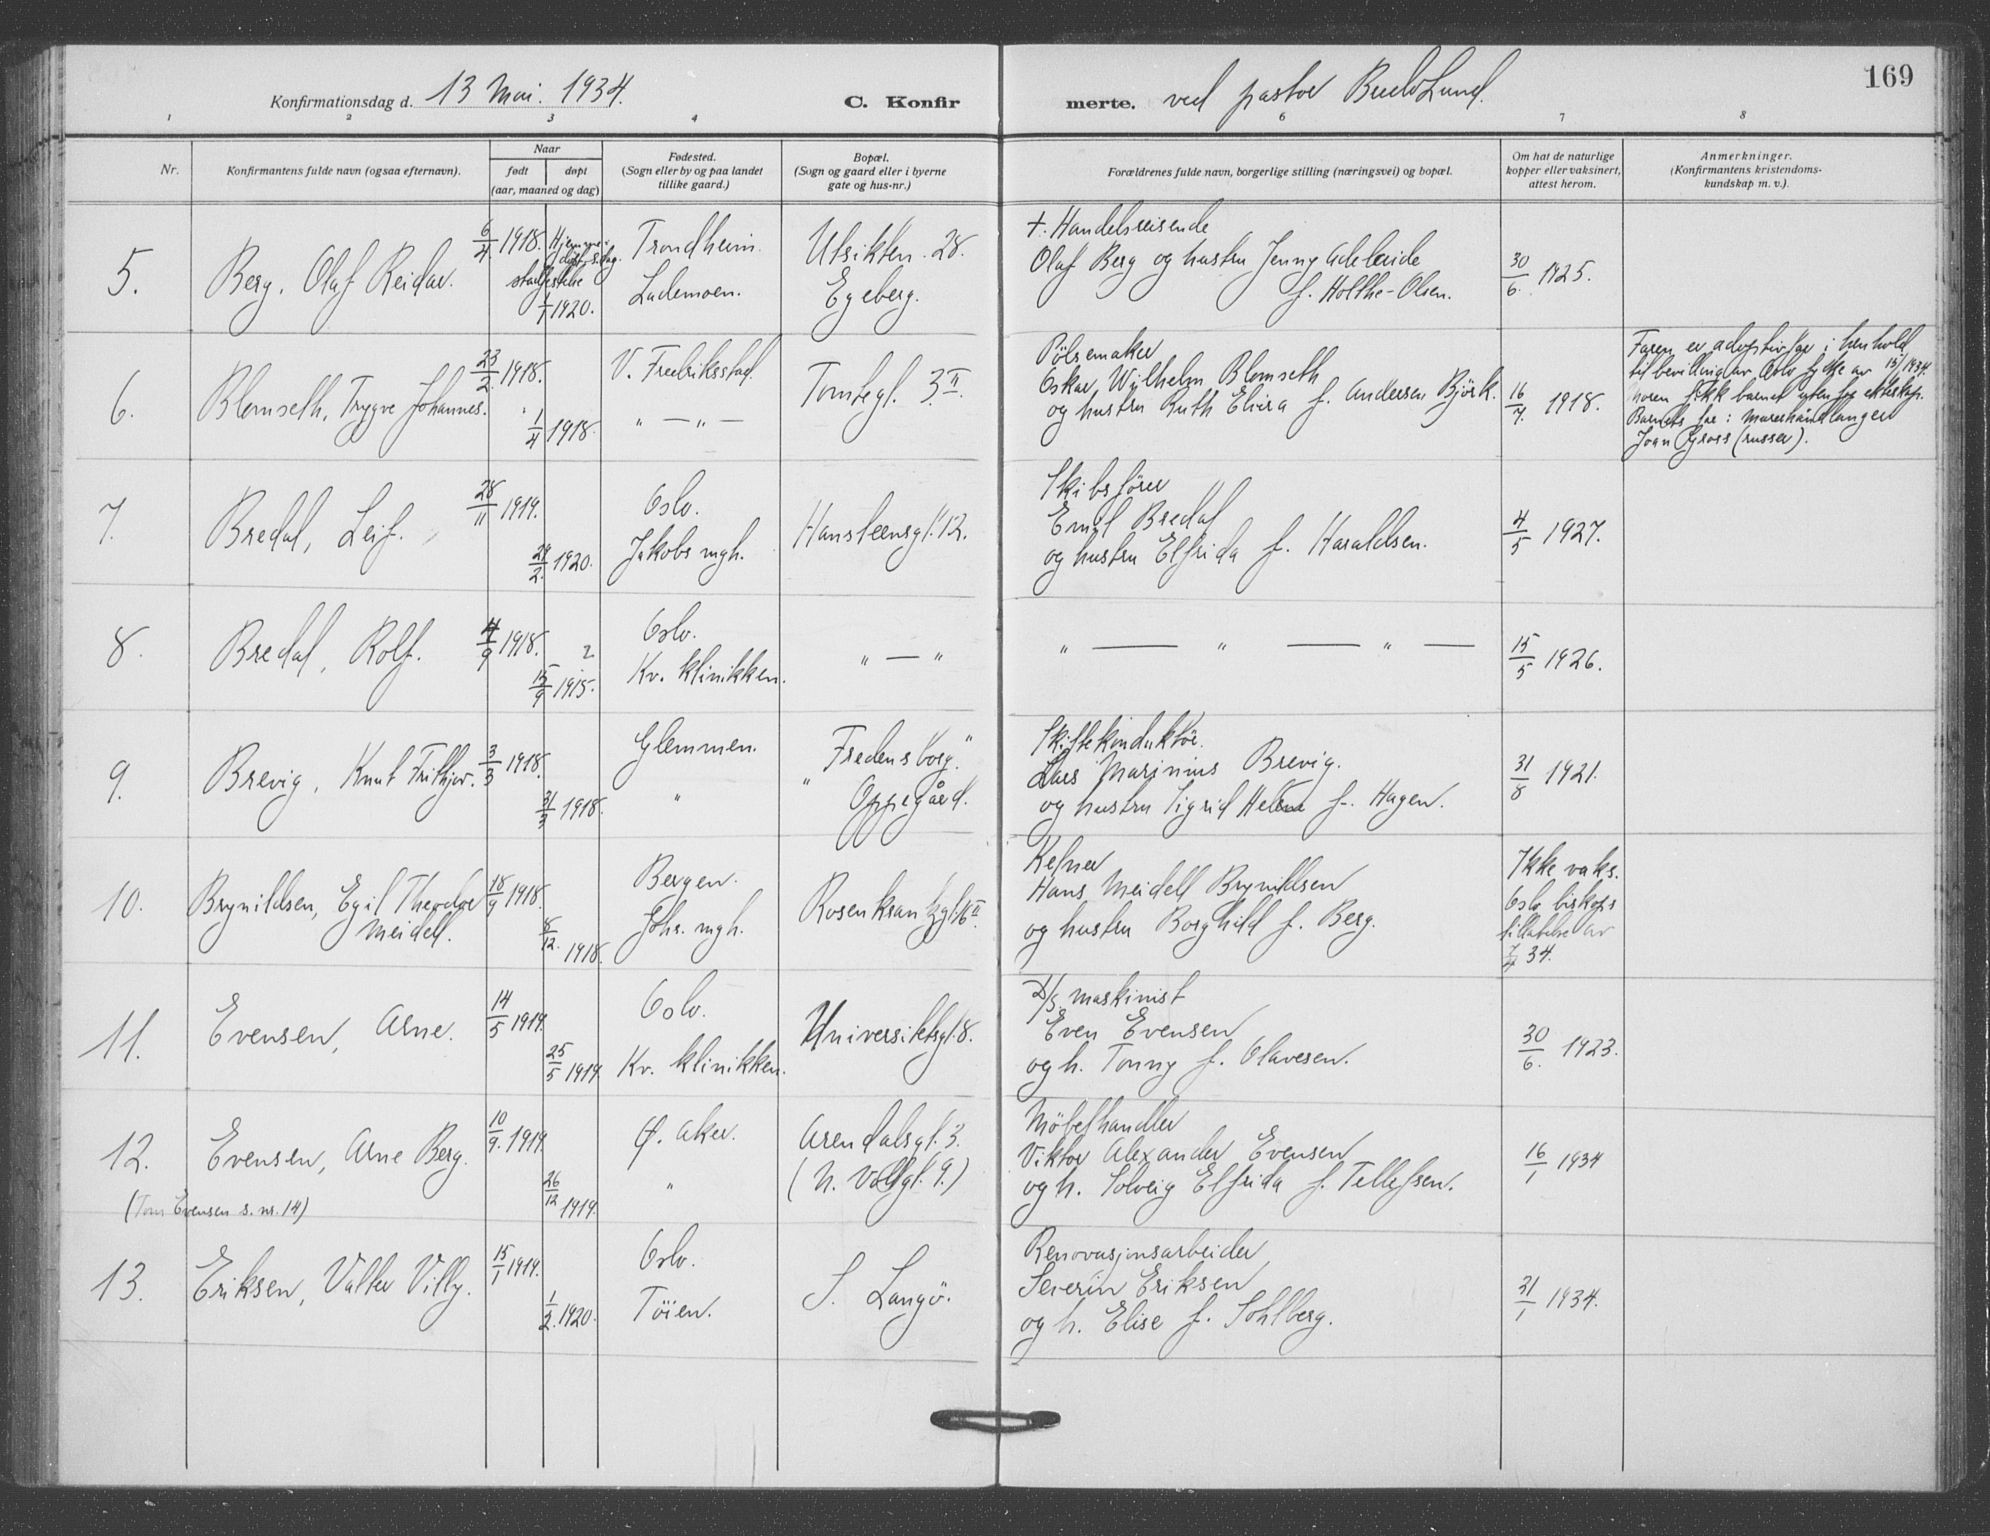 169
Konfirmationsdag d. 13 Mai. 1934.
C. Konfirmerte. ved pastor Lund.
1 2 3 4 6 7 8
Nr.
Konfirmantens fulde navn (ogsaa efternavn).
Naar
født
døpt
(aar, maaned og dag)
Fødested.
(Sogn eller by og paa landet
tillike gaard.)
Bopæl.
(Sogn og gaard eller i byerne
gate og hus-nr.)
Forældrenes fulde navn, borgerlige stilling (næringsvei) og bopæl.
Om hat de naturlige
kopper eller vaksinert,
attest herom.
Anmerkninger.
(Konfirmantens kristendoms-
kundskap m. v.).
5.
Berg, Olaf Reidar.
6/4 1918.
Hjemme-
døpt s. dag.
stadfestelse
1/1 1920.
Trondheim.
Lademoen.
Utsikten. 28.
Egeberg.
+. Handelsreisende
Olaf Berg og hustru Jenny Adeleide
f. Holthe-Olsen.
30/6. 1925.
6.
Blomseth, Trygve Johannes.
23/2. 1918.
1/4 1918.
V. Fredriksstad.
" — " —
Tomtegt. 3 II.
Pölsemaker
Oskar Wilhelm Blomseth
og hustru Ruth Elvira f. Andersen Björk.
16/7. 1918.
Faren er adoptivfar i henhold
til bevilling av Oslo fylke av 15/1 1934.
Moren fikk barnet utenfor ekteskap.
Barnets far: murerhåndlanger
Joan Gross (russer).
7.
Bredal, Leif.
28/11 1919.
29/2. 1920.
Oslo.
Jakobs mgh.
Hansteensgt. 12.
Skibsförer
Emil Bredal
og hustru Elfrida f. Haraldsen.
4/5 1927.
8.
Bredal, Rolf.
4/9 1918.
2
15/9 1915.
Oslo.
Kv. klinikken.
" — "
" — " — " —
15/5 1926.
9.
Brevig, Knut Frithjov.
3/3 1918.
31/3 1918.
Glemmen.
"
"Fredensborg"
Oppegård.
Skiftekonduktør.
Lars Marinius Brevig.
og hustru Sigrid Helene f. Hagen.
31/8 1921.
10.
Brynildsen, Egil Theodor
Meidell.
18/9 1918.
8/12. 1918.
Bergen.
Johs. mgh.
Rosenkrantzgt. 16 II.
Kelner
Hans Meidell Brynildsen
og hustru Borghild f. Berg.
Ikke vaks.
Oslo biskops
tillatelse av
7/4 34.
11.
Evensen, Arne.
14/5 1919.
25/5 1919.
Oslo.
Kv. klinikken.
Universitetsgt. 8.
D/S. maskinist
Even Evensen
og h. Tonny f. Olavesen.
30/6. 1923.
12.
Evensen, Arne Berg.
(Tom Evensen s. nr. 14)
10/9. 1919.
26/12 1919.
Ø. Aker.
"
Arendalsgt. 3.
(N. Vollgt. 9.)
Möbelhandler
Viktor Alexander Evensen
og h. Solveig Elfrida f. Tellefsen.
16/1 1934
13.
Eriksen, Valter Villy.
15/1 1919.
1/2. 1920.
Oslo.
Töien.
S. Langö.
Renovasjonsarbeider
Severin Eriksen
og h. Elise f. Sohlberg.
31/1 1934.